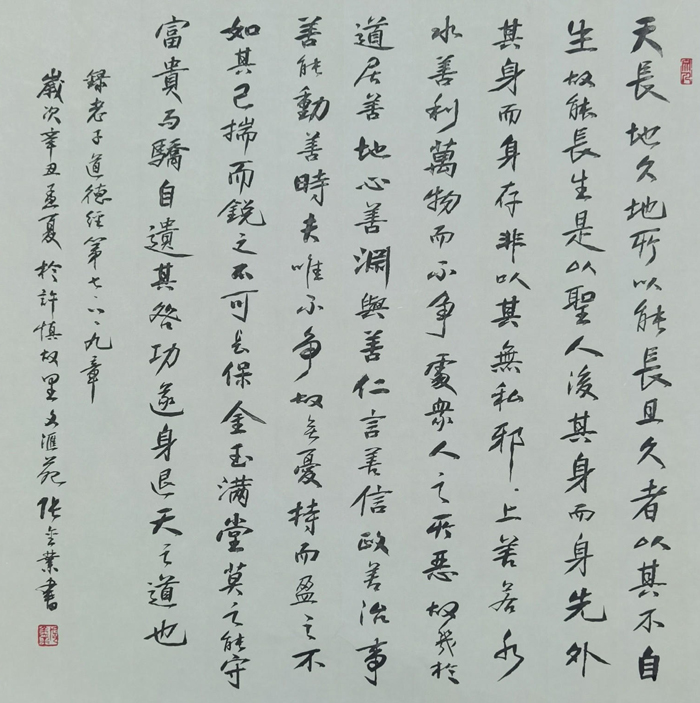 天長地久地所以能長且久者以其不自
生故能長生是以聖人後其身而身先外
其身而身存非以其無私邪上善若水
水善利萬物而不争處衆人之所惡故幾於
道居善地心善淵與善仁言善信政善治事
善能動善時夫唯不争故無憂持而盈之不
如其已揣而鋭之不可長保金玉满堂莫之能守
富貴而驕自遺其咎功遂身退天之道也
録老子道德經第七八九章
歲次辛丑孟夏於許慎故里文滙苑張金業書